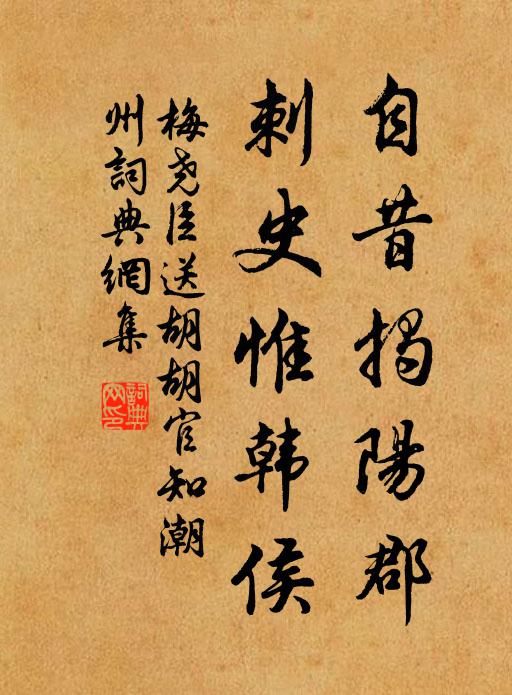 自昔揭陽郡
刺史惟韩侯
梅尧臣送胡胡官知潮
州詞典網集
詞典
网印